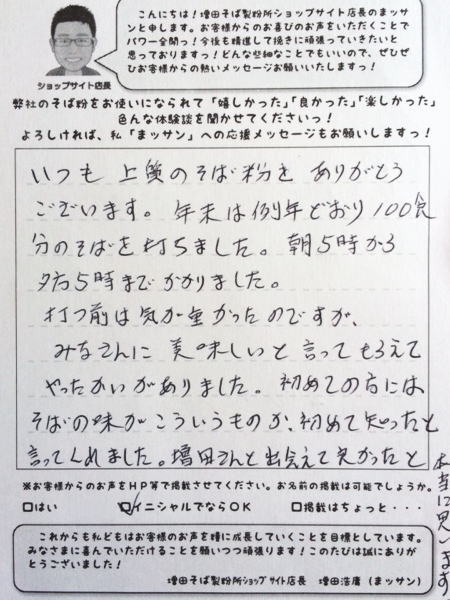 こんにちは！増田そば製粉所ショップサイト店長のまッサ
ンと申します。お客様からのお喜びのお声をいただくことで
パワー全開っ！今後も精進して挽きに頑張っていきたいと
思っておりますっ！どんな些細なことでもいいので、ぜひぜ
ひお客様からの熱いメッセージお願いいたしますっ！
ショップサイト店長
弊社のそば粉をお使いになられて「嬉しかった」「良かった」「楽しかった」
色んな体験談を聞かせてくださいっ！
よろしければ、私「まッサン」への応援メッセージもお願いしますっ！
いつも上質のそば粉を ありがとう
ございます。年末は例年どおり100食
分のそばを打ちました。朝5時から
夕方5時までかかりました。
打つ前は気が重かったのですが、
みなさんに美味しいと言ってもらえて
やったかいがありました。初めての方には
そばの味がこういうものか、初めて知ったと
言ってくれました。増田さんと出会えて良かったと
本当に思います
※お客様からのお声をHP等で掲載させてください。お名前の掲載は可能でしょうか。
□はい ☑イニシャルでならOK □掲載はちょっと・・・
これからも私どもはお客様のお声を糧に成長していくことを目標としています。
みなさまに喜んでいただけることを願いつつ頑張ります！このたびは誠にありが
とうございました！
増田そば製粉所ショップサイト店長 増田浩庸（まッサン）